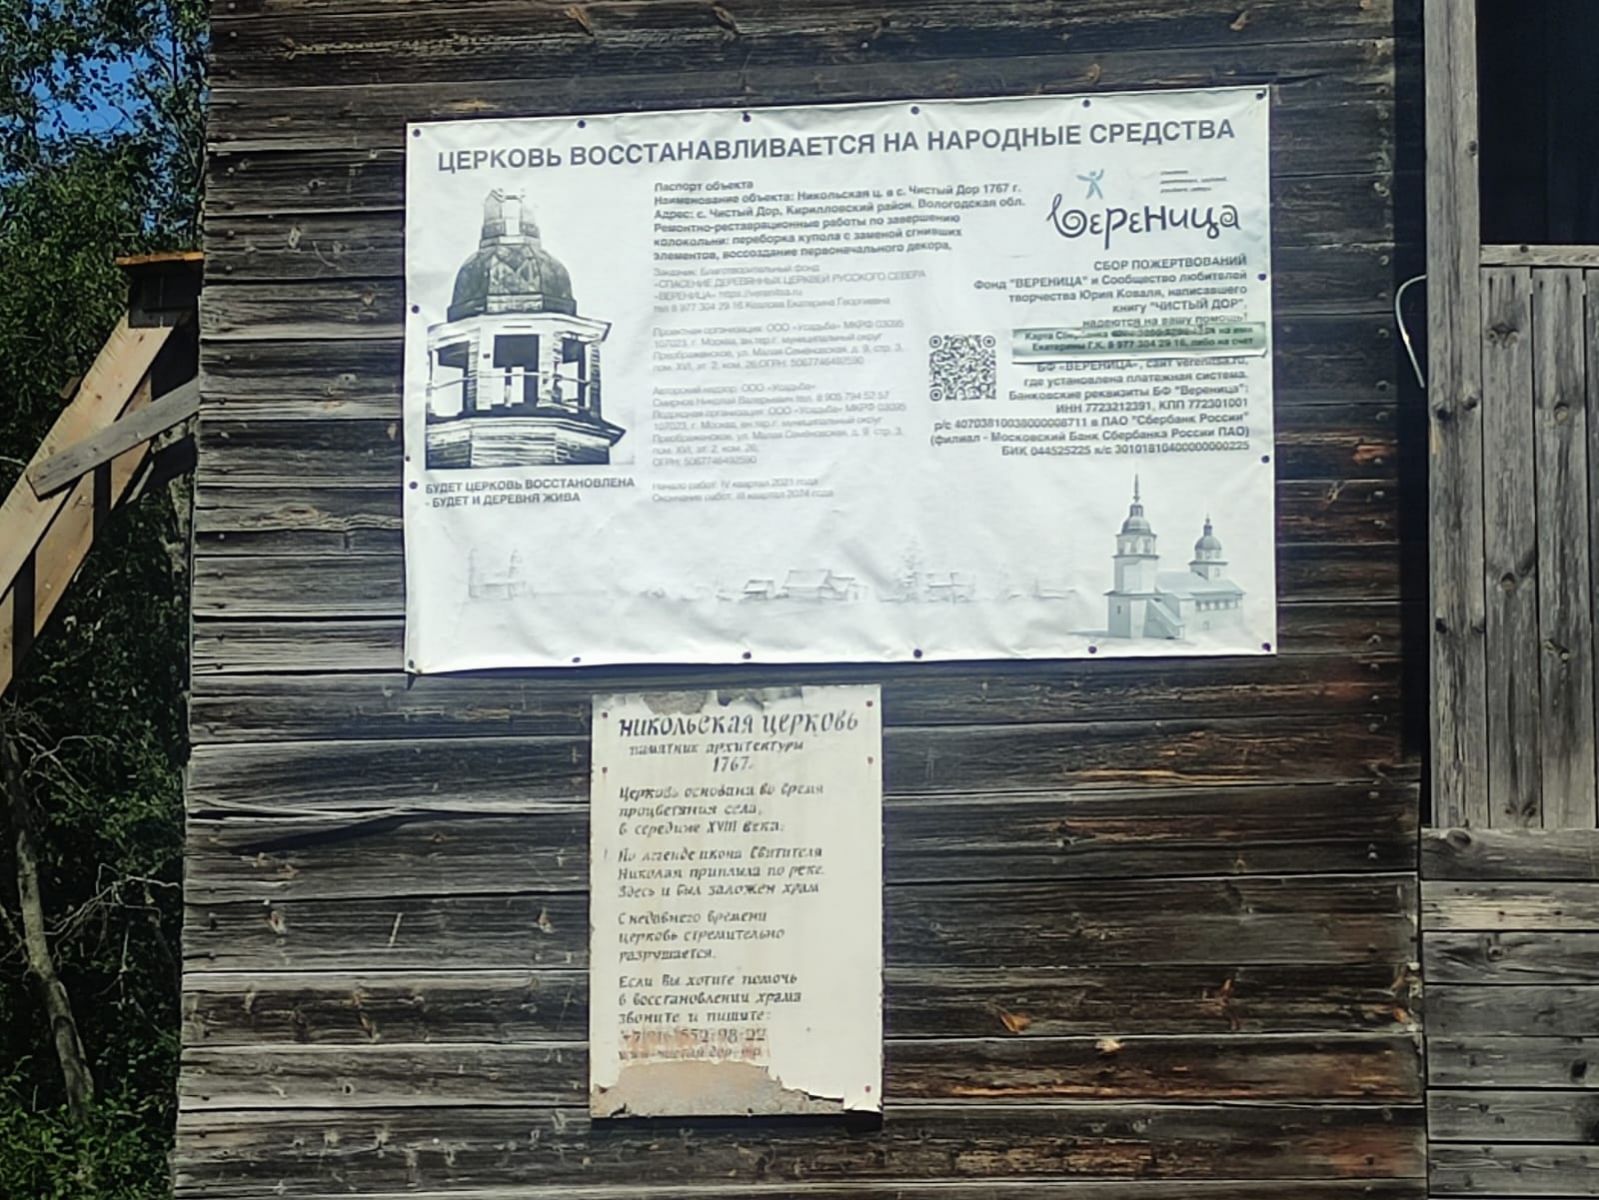 ЦЕРКОВЬ ВОССТАНАВЛИВАЕТСЯ НА НАРОДНЫЕ СРЕДСТВА
Паспорт объекта
Наименование объекта: Никольская ц. в с. Чистый Дор 1767 г.
Адрес: с. Чистый Дор, Кирилловский район, Вологодская обл.
Ремонтно-реставрационные работы по завершению
колокольни: переборка купола с заменой сгнивших
элементов, воссоздание первоначального декора,
Заказчик: Благотворительный фонд
«СПАСЕНИЕ ДЕРЕВЯННЫХ ЦЕРКВЕЙ РУССКОГО СЕВЕРА
«ВЕРЕНИЦА» https://verenitsa.ru
тел 8 977 304 29 16 Козлова Екатерина Георгиевна
Проектная организация: ООО «Усадьба» МКРФ 03095
107023, г. Москва, вн.тер.г. муниципальный округ
Преображенское, ул. Малая Семёновская, д. 9, стр. 3,
пом. XVI, эт. 2, ком. 26,ОГРН: 5067746492590
Авторский надзор: ООО «Усадьба»
Смирнов Николай Валерьевич тел. 8 905 794 52 57
Подрядная организация: ООО «Усадьба» МКРФ 03095
107023, г. Москва, вн.тер.г. муниципальный округ
Преображенское, ул. Малая Семёновская, д. 9, стр. 3,
пом. XVI, эт. 2, ком. 26,
ОГРН: 5067746492590
Начало работ: IV квартал 2021 года
Окончание работ: III квартал 2024 года
БУДЕТ ЦЕРКОВЬ ВОССТАНОВЛЕНА
- БУДЕТ И ДЕРЕВНЯ ЖИВА
Вереница
СБОР ПОЖЕРТВОВАНИЙ
Фонд "ВЕРЕНИЦА" и Сообщество любителей
творчества Юрия Коваля, написавшего
книгу "ЧИСТЫЙ ДОР",
надеются на вашу помощь!
Карта на имя
Екатерины Г.К. 8 977 304 29 16, либо на счет
БФ «ВЕРЕНИЦА», сайт verenitsa.ru,
где установлена платежная система.
Банковские реквизиты БФ "Вереница":
ИНН 7723212391, КПП 772301001
р/с 40703810038000008711 в ПАО "Сбербанк России"
(филиал - Московский Банк Сбербанка России ПАО)
БИК 044525225 к/с 30101810400000000225
НИКОЛЬСКАЯ ЦЕРКОВЬ
памятник архитектуры
1767г.
Церковь основана во время
процветания села,
в середине XVIII века.
По легенде икона Святителя
Николая приплыла по реке.
Здесь и был заложен храм
С недавнего времени
церковь стремительно
разрушается.
Если Вы хотите помочь
в восстановлении храма
звоните и пишите:
552-98-22